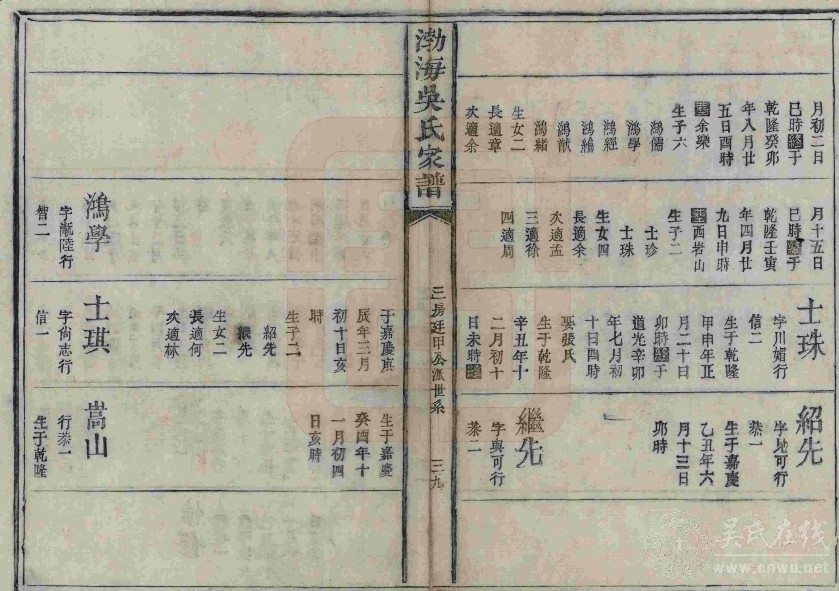 月初二日
巳時終于
乾隆癸卯
年八月廿
五日酉時
葬余樂
生子六
鴻儒
鴻學
鴻經
鴻綸
鴻猷
鴻緒
生女二
長適章
次適余
月十五日
巳時終于
乾隆壬寅
年四月廿
九日申時
葬西岩山
生子二
士珍
士珠
生女四
長適余
次適孟
三適徐
四適周
士珠
字川媚行
信二
生于乾隆
甲申年正
月二十日
卯時終于
道光辛卯
年七月初
十日酉時
娶張氏
生于乾隆
辛丑年十
二月初十
日未時終
紹先
字地可行
恭一
生于嘉慶
乙丑年六
月十三日
卯時
繼先
字與可行
恭二
渤海吳氏家譜
三房廷甲公派世系
三九
鴻學
字漸陸行
智二
于嘉慶庚
辰年三月
初十日亥
時
生子二
紹先
繼先
生女二
長適何
次適林
士琪
字尙志行
信一
生于嘉慶
癸酉年十
一月初四
日亥時
嵩山
行恭一
生于乾隆
吴氏在线
www.cnwu.net